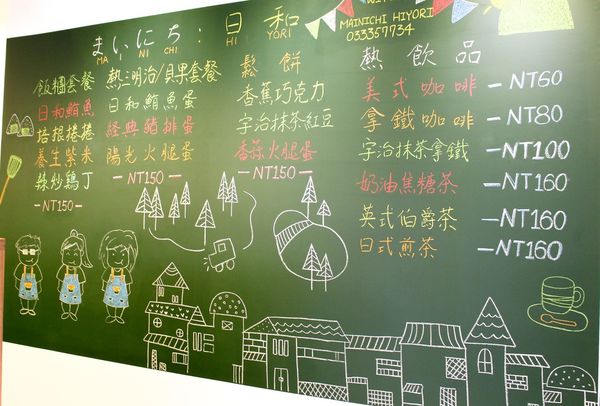 MAINICHI HIYORI
033357734
まいにち：日和
MA I NI CHI HI YORI
飯糰套餐
日和鮪魚
培根捲捲
養生紫米
辣炒鷄丁
—NT150—
熱三明治/貝果套餐
日和鮪魚蛋
經典豬排蛋
陽光火腿蛋
—NT150—
鬆餅
香蕉巧克力
宇治抹茶紅豆
香蒜火腿蛋
—NT150—
熱飲品
美式咖啡 —NT60
拿鐵咖啡 —NT80
宇治抹茶拿鐵 —NT100
奶油焦糖茶 —NT160
英式伯爵茶 —NT160
日式煎茶 —NT160